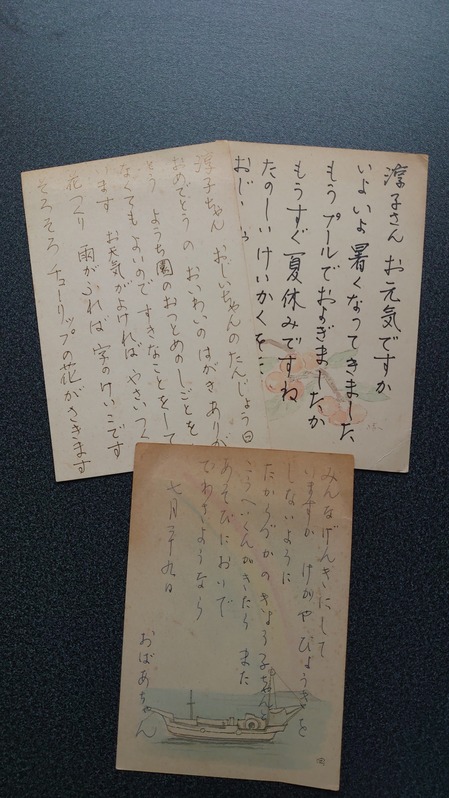 淳子さん お元気ですか
いよいよ 暑くなってきました
もう プールでおよぎましたか
もうすぐ 夏休みですね
たのしい けいかくを
おじい
淳子ちゃん おじいちゃんのたんじょう日
おめでとう の おいわいの はがき ありが
とう ようち園のおつとめのしごとを
なくてもよいので すきなことをして
います お天気がよければ やさいつく
花つくり 雨がふれば 字のけいこです
そろそろ チューリップの花がさきます
みんなげんきにして
いますか けがやびょうきを
しないように
たからづかのきょう子ちゃんと
こうへいくんがきたら また
あそびにおいで
でわさようなら
七月二十九日
おばあちゃん